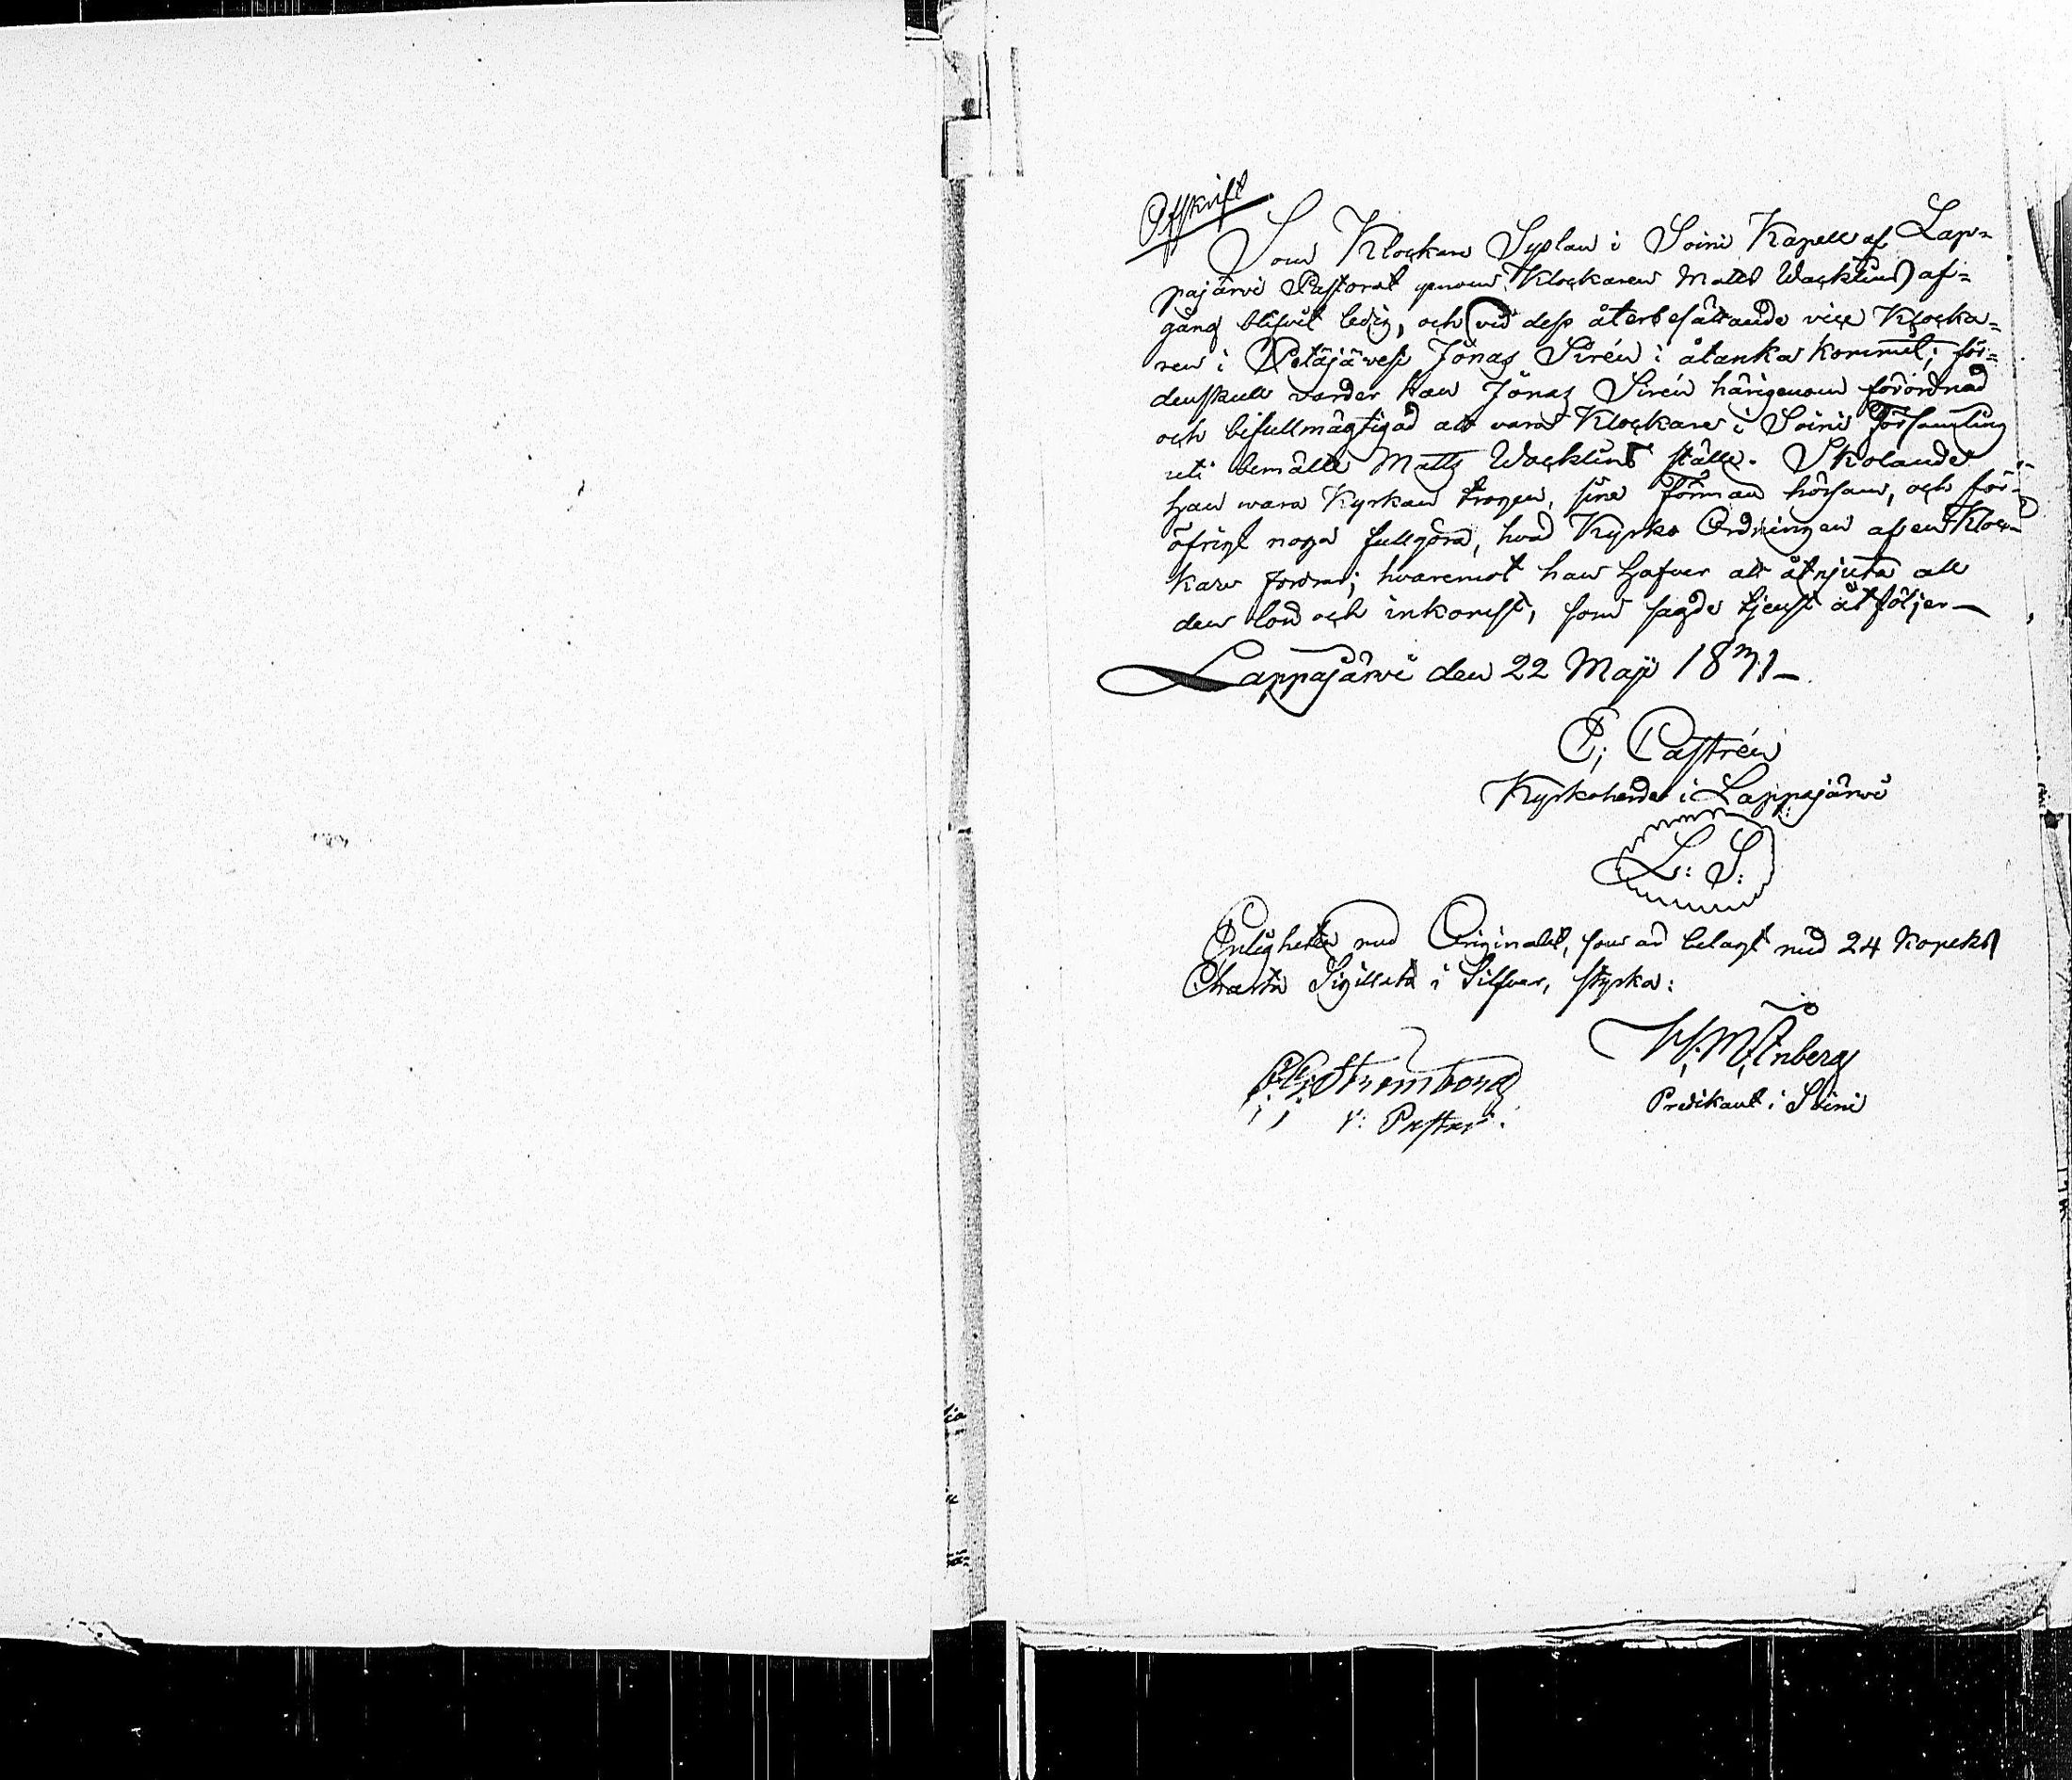 Afskrift
Som Klockare Syslan i Soini Kapell af Lap=
pajärvi Pastorat genom Klockaren Matts Wacklins af=
gång blifvit ledig, och vid dess återbesättande vice Klocka=
ren i Petäjävesi Jonas Sirén i åtanka kommit; för=
denskull varder han Jonas Sirén härigenom förordnad
och befullmägtigad att vara Klockare i Soini Församling
uti bemälte Matts Wacklins ställe. Skolande
han wara Kyrkan trogen, sine Förmän hörsam, och för=
öfrigt noga fullgöra, hvad Kyrko Ordningen af en Kloc=
kare fordrar; hvaremot han hafver att åtnjuta all
den lön och inkomst, som sagde tjenst åtföljer—
Lappajärvi den 22 Maji 1831—
E; Castrén
Kyrkoherde i Lappajärvi
L: S:
Enligheten med Originalet, som är belagt med 24 Kopeks
Charta Sigillata i Silfver, styrka:
Strömborg W. M. Ånberg
v: Pastor. Predikant i Soini